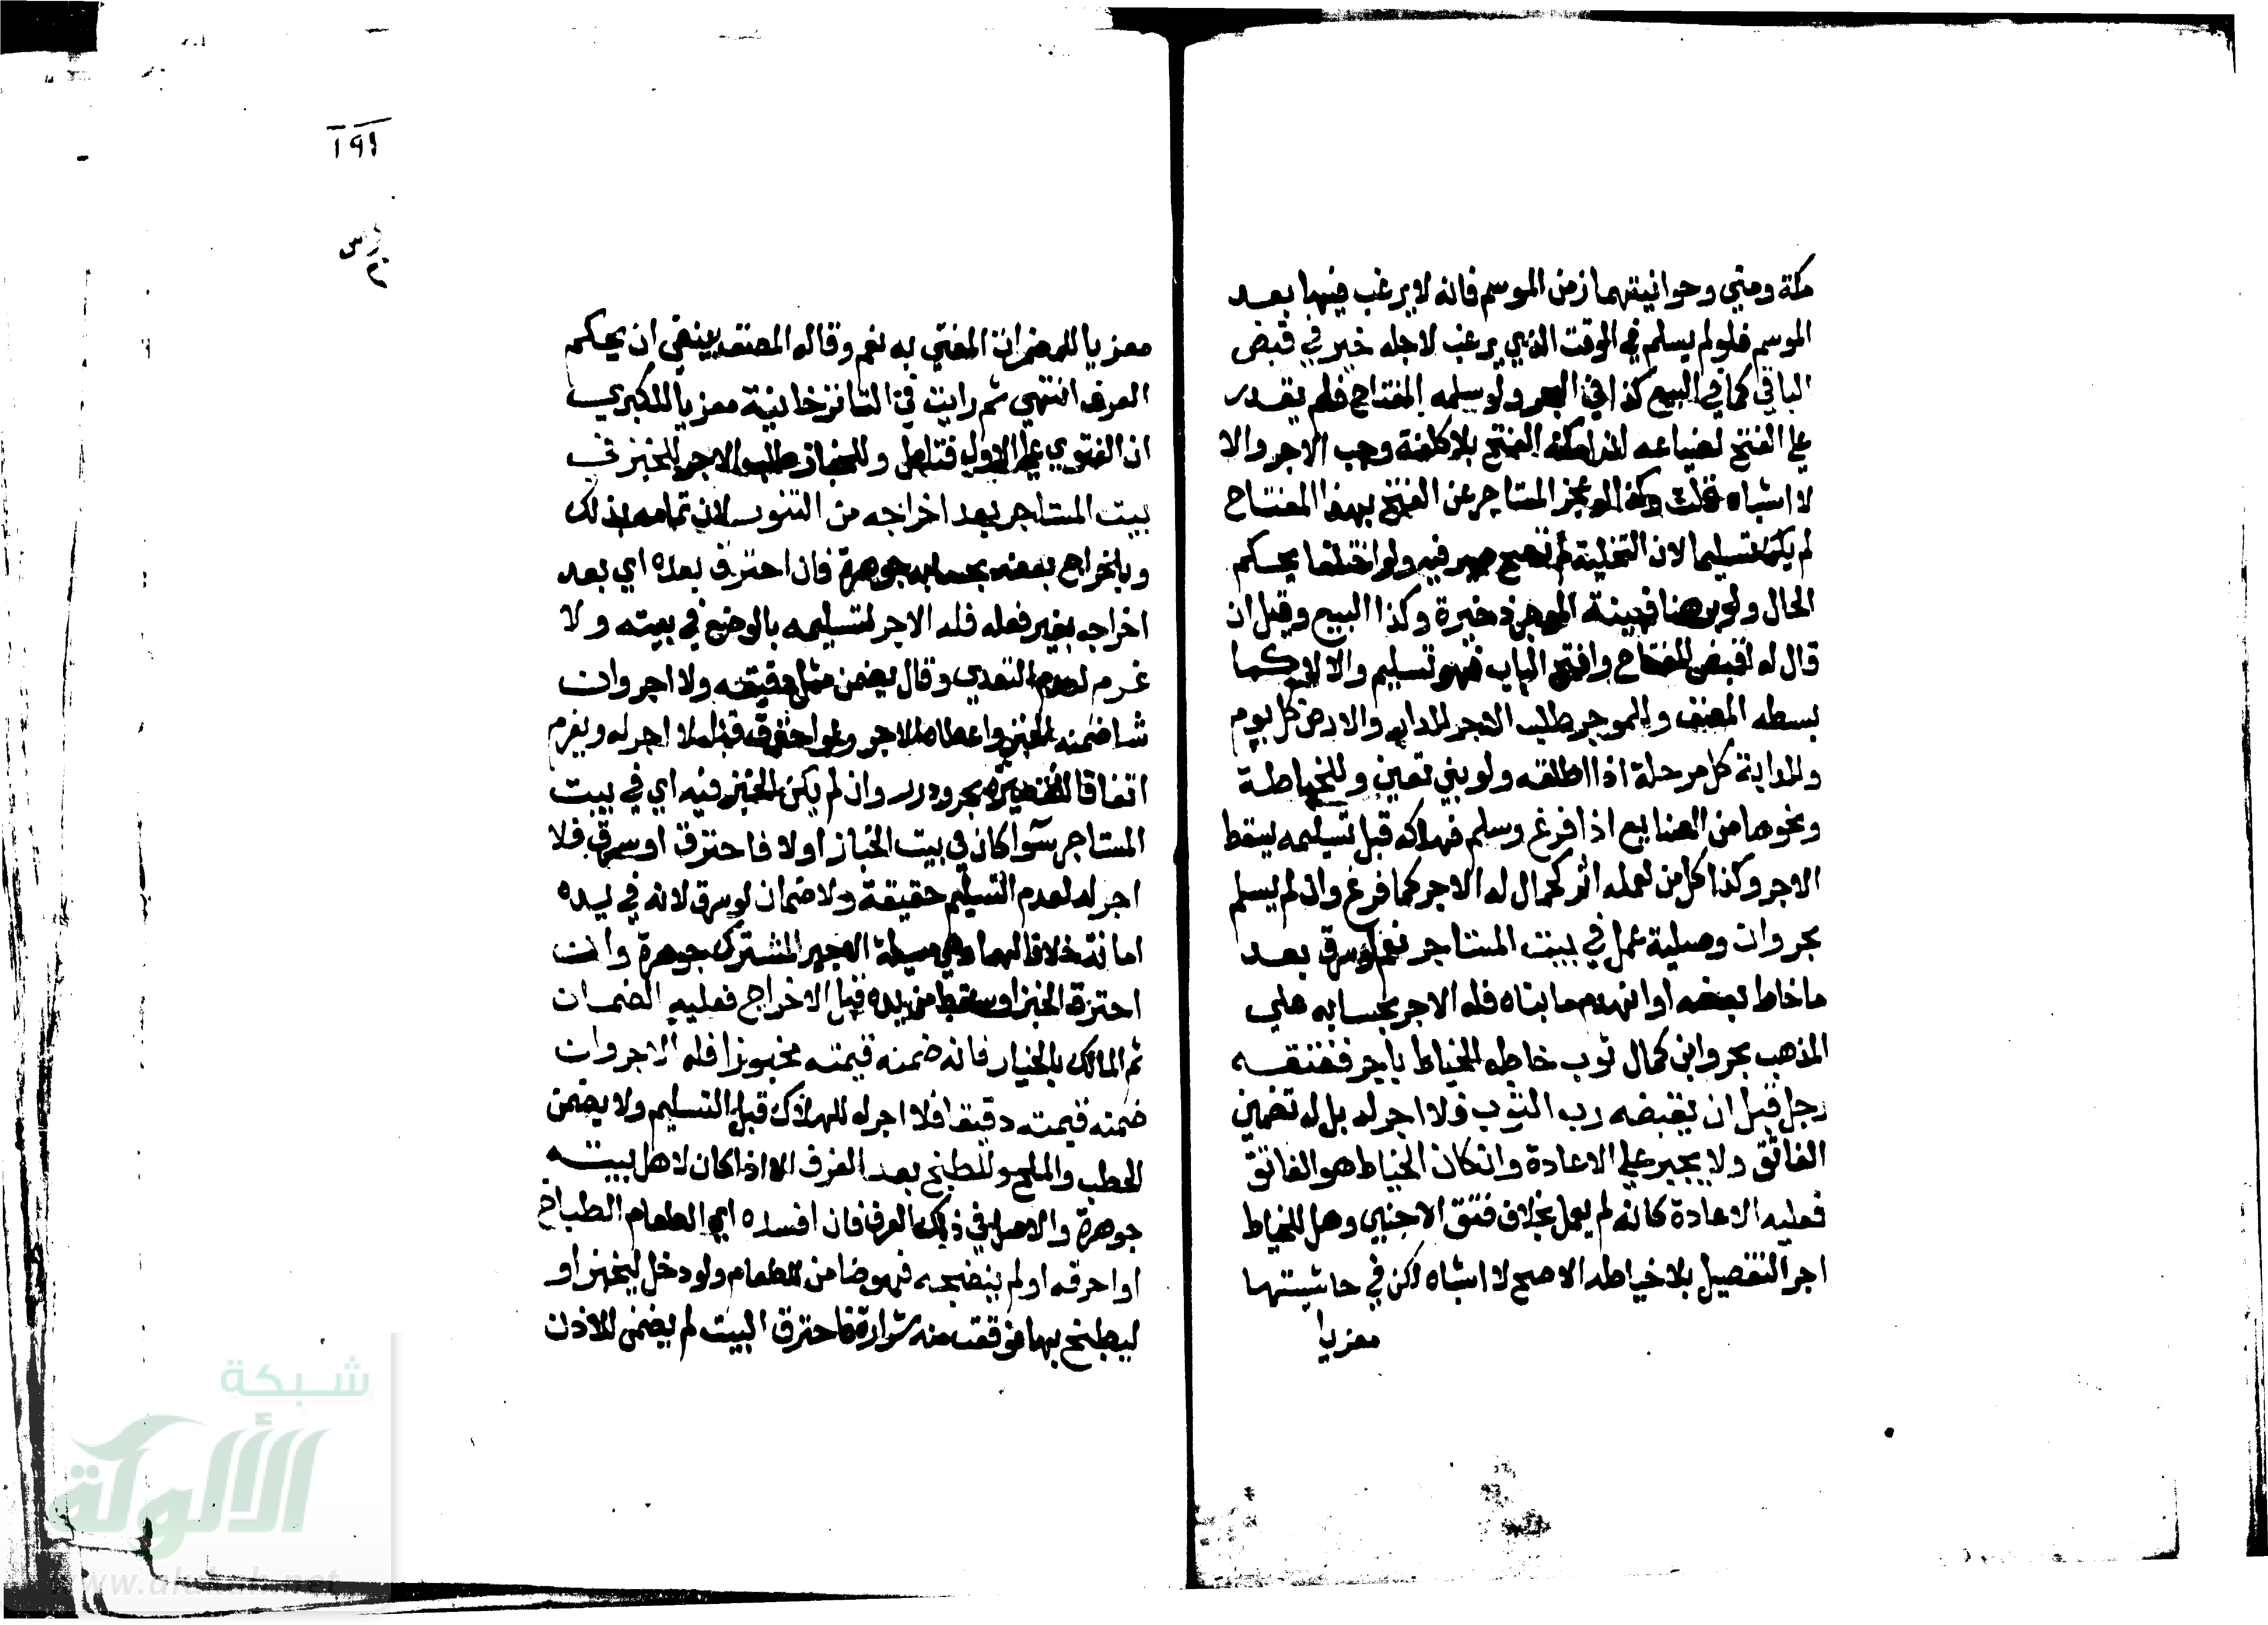 مكة ومني وحوانيتهما زمن الموسم فانه لا يرغب فيها بعد
الموسم فلو لم يسلم في الوقت الذي يرغب لاجله خير في قبض
الباقي كما في البيع كذا في البحر ولو سلمه المفتاح فلم يقدر
علي الفتح لضياعه ان امكنه الفتح بلا كلفة وجب الاجر والا
لا اشباه قلت وكذا لو عجز المستاجر عن الفتح بهذا المفتاح
لم يكن تسليما لان التخلية لم تصح صيرفيه ولو اختلفا يحكم
الحال ولو برهنا فبينة الموجر ذخيرة وكذا البيع وقيل ان
قال له اقبض المفتاح وافتح الباب فهو تسليم والا لا كما
بسطه المصنف وللموجر طلب الاجر للدار والارض كل يوم
وللدابة كل مرحلة اذا اطلقه ولو بين تعين وللخياطة
ونحوها من الصنايع اذا فرغ وسلم فهلاكه قبل تسليمه يسقط
الاجر وكذا كل من لعمله اثر كحمال له الاجر كما فرغ وان لم يسلم
بحر وان وصلية عمل في بيت المستاجر نعم لو سرق بعد
ما خاط بعضه او انهدم ما بناه فله الاجر بحسابه علي
المذهب بحر وابن كمال ثوب خاطه الخياط باجر ففتقه
رجل قبل ان يقبضه رب الثوب فلا اجر له بل له تضمين
الفاتق ولا يجبر علي الاعادة وان كان الخياط هو الفاتق
فعليه الاعادة كانه لم يعمل بخلاف فتق الاجنبي وهل للخياط
اجر التفصيل بلا خياطه الاصح لا اشباه لكن في حاشيتها
معزيا
١٩١
معزيا للمضمرات المفتي به نعم وقال المصنف ينبغي ان يحكم
العرف انتهي ثم رايت في التاترخانية معزيا للكبري
ان الفتوي علي الاول فتامل وللخباز طلب الاجر للخبز في
بيت المستاجر بعد اخراجه من التنور لان تمامه بذلك
وباخراج بعضه بحسابه جوهرة فان احترق بعده اي بعد
اخراجه بغير فعله فله الاجر لتسليمه بالوضع في بيته ولا
غرم لعدم التعدي وقال يضمن مثل دقيقه ولا اجر وان
شا ضمنه الخبز واعطاه الاجر ولو احترق قبله لا اجر له ويغرم
اتفاقا لتقصيره بحر ودرر وان لم يكن الخبز فيه اي في بيت
المستاجر سوا كان في بيت الخباز او لا فاحترق او سرق فلا
اجر له لعدم التسليم حقيقة ولا ضمان لو سرق لانه في يده
امانة خلافا لهما وهي مسيلة الاجير المشترك جوهرة وان
احترق الخبز او سقط من يده قبل الاخراج فعليه الضمان
ثم المالك بالخيار فانه ضمنه قيمته مخبوزا فله الاجر وان
ضمنه قيمته دقيقا فلا اجر له للهلاك قبل التسليم ولا يضمن
الحطب والملح وللطبخ بعد الغرف الا اذا كان لاهل بيته
جوهرة والاصل في ذلك العرف فان افسده اي الطعام الطباخ
او احرقه او لم ينضجه فهو ضامن للطعام ولو دخل ليخبز او
ليطبخ بها فوقعت منه شرارة فاحترق البيت لم يضمن للاذن
شبكة
الألوكة
www.alukah.net